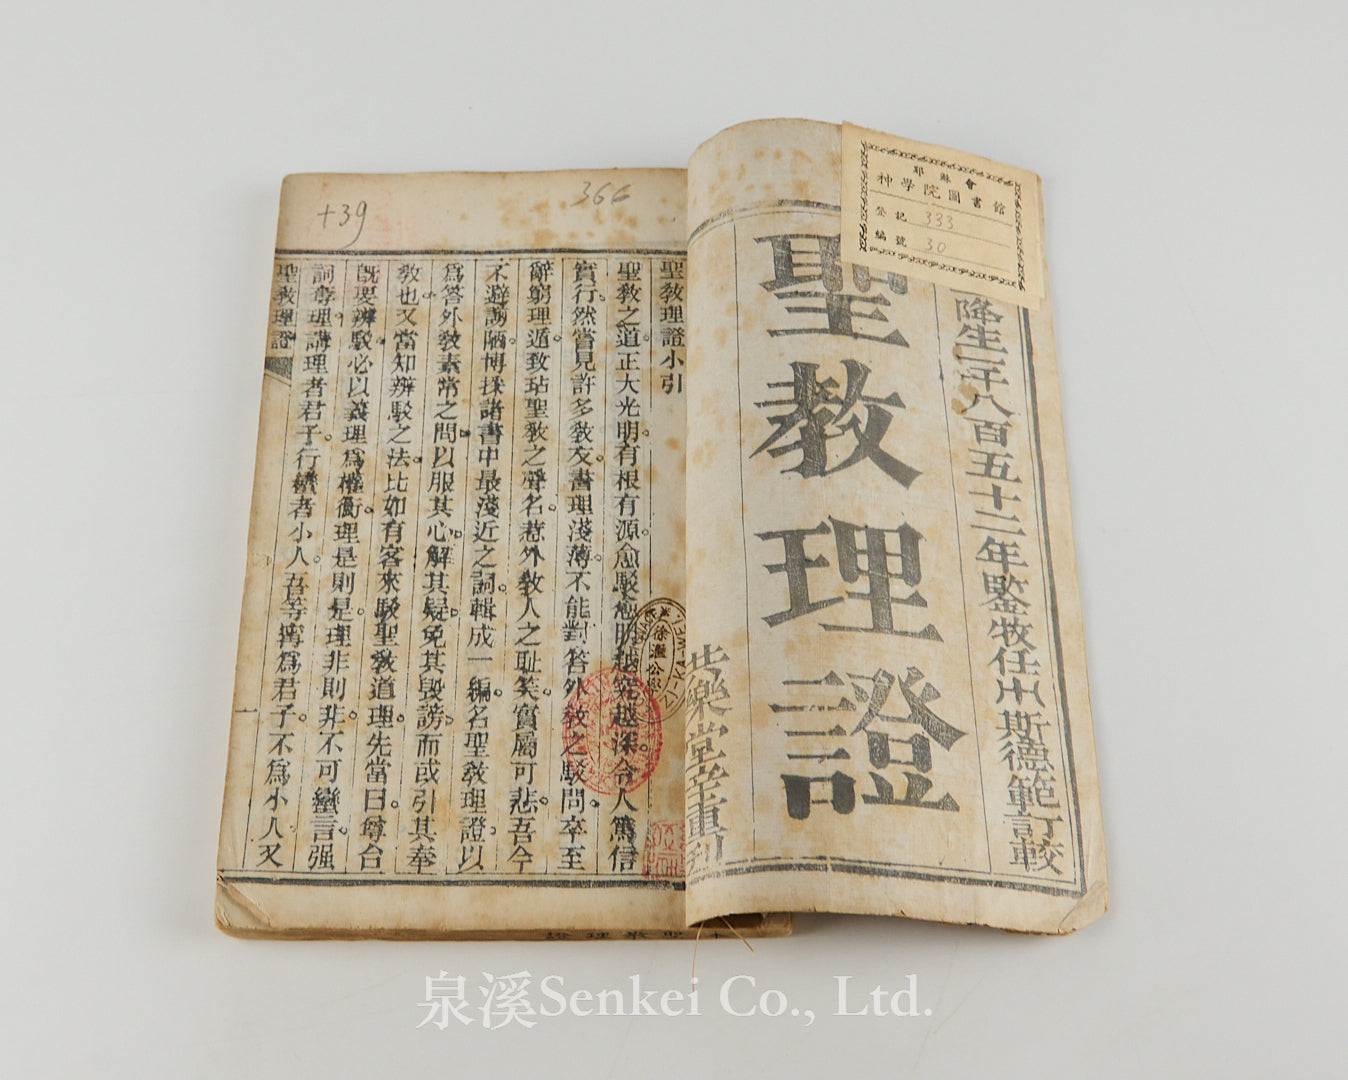 耶穌會
神學院圖書館
登記 333
編號 30
降生一千八百五十二年鑒牧任斯德範訂較
聖教理證
樂堂
重刊
366
+39
聖教理證小引
聖教之道正大光明有根有源愈駁愈明越究越深令人篤信
實行然嘗見許多教友書理淺薄不能對答外教之駁問卒至
辭窮理遁致玷聖教之聲名惹外教人之耻笑實屬可悲吾今
不避謭陋博採諸書中最淺近之詞輯成一編名聖教理證以
為答外教素常之問以服其心解其疑免其毀謗而或引其奉
教也又當知辨駁之法比如有客來駁聖教道理先當曰尊台
既要辨駁必以義理為權衡理是則是理非則非不可蠻言强
詞奪理講理者君子行蠻者小人吾等寧為君子不為小人又
聖教理證
一
徐滙公學
聖教理證
泉溪Senkei Co., Ltd.